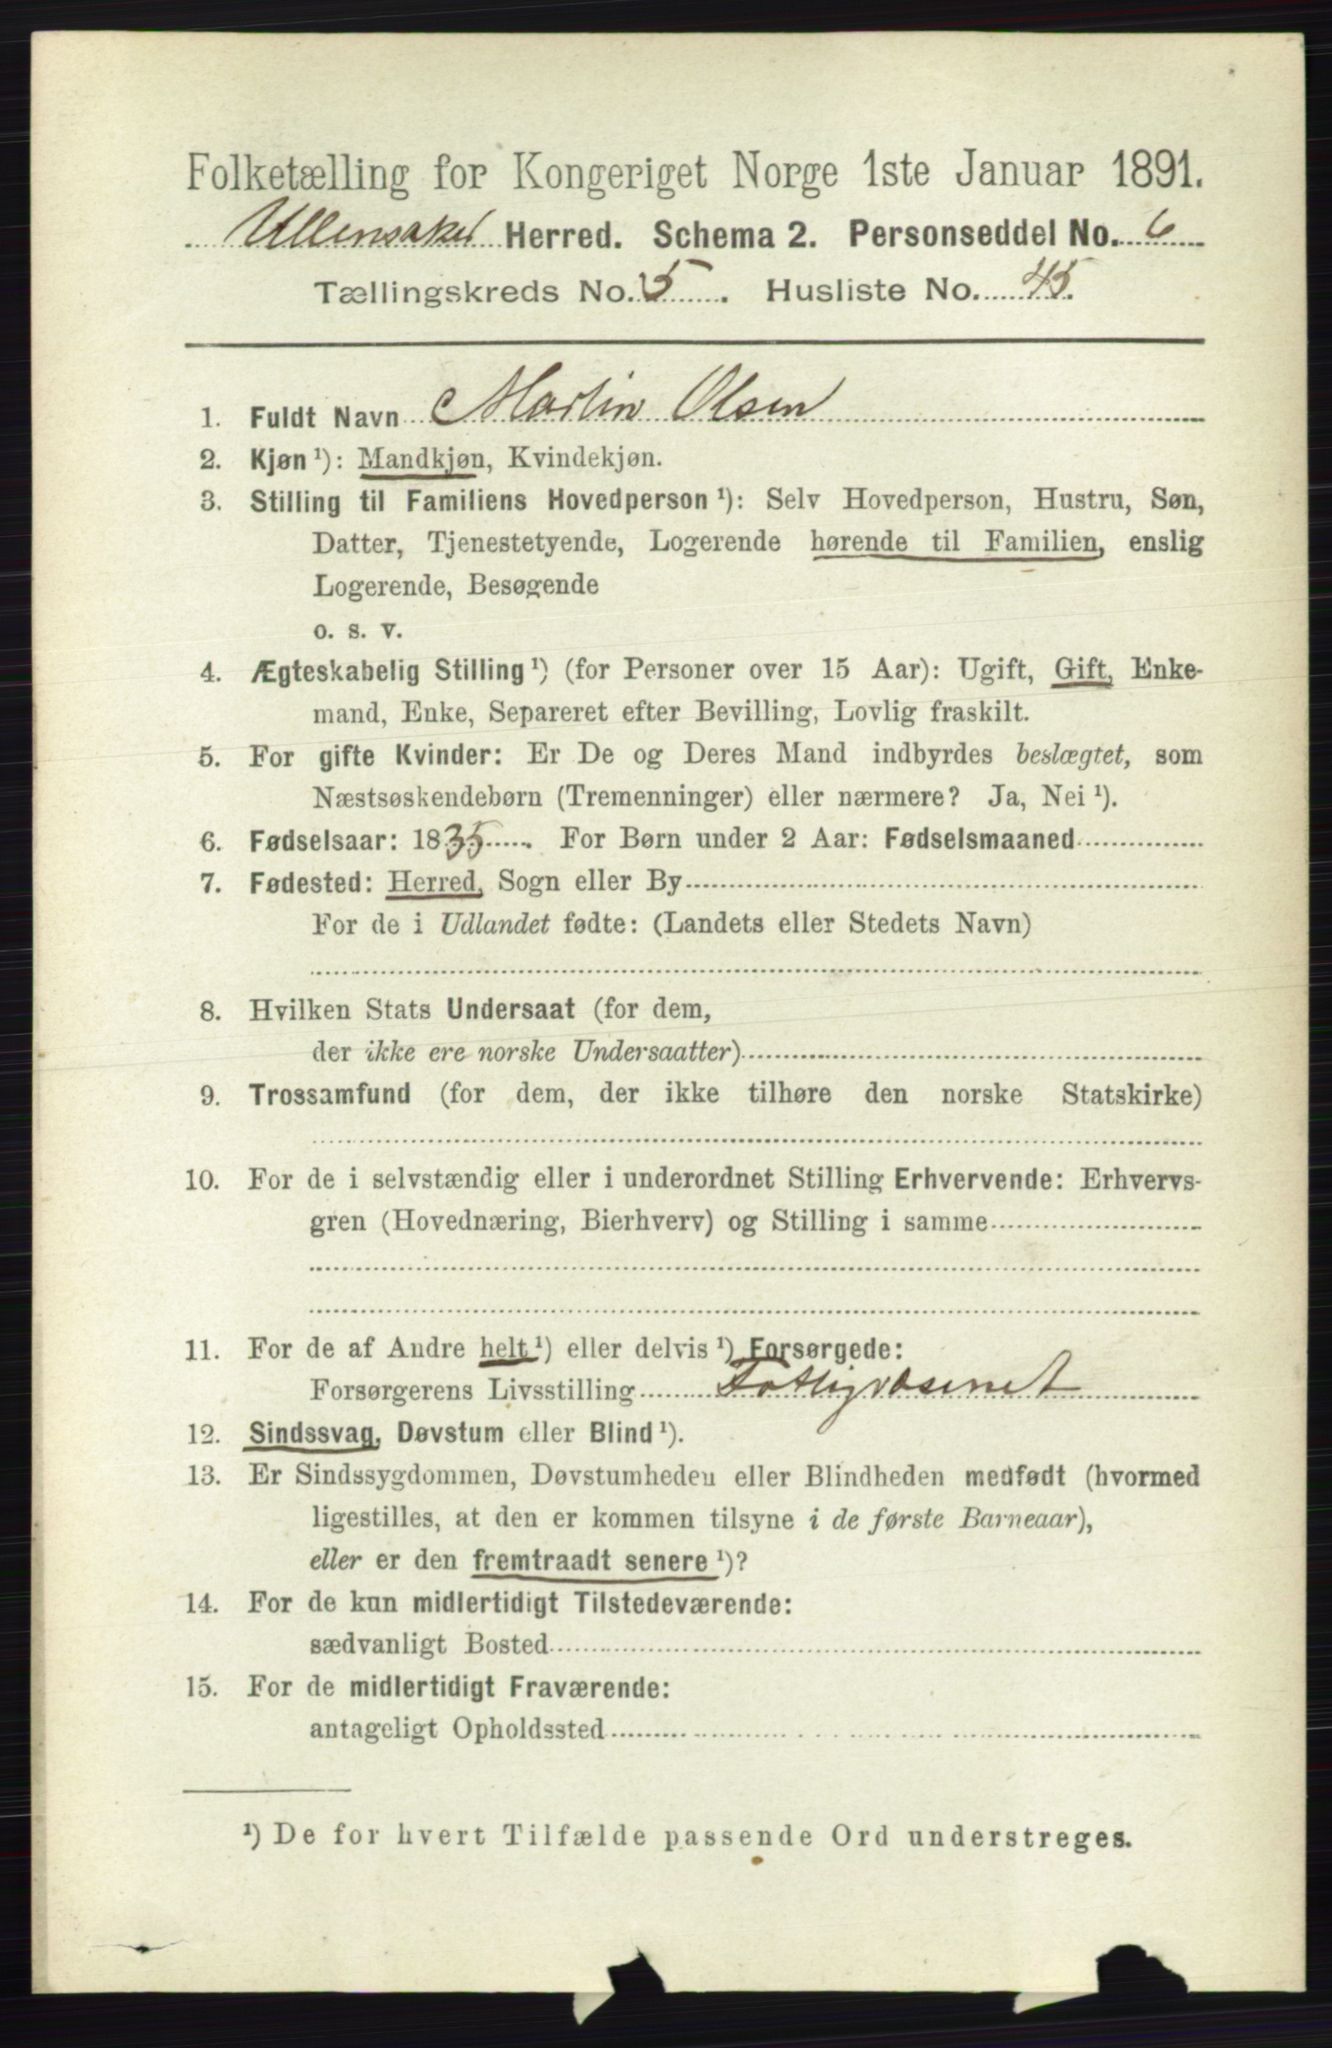 Folketælling for Kongeriget Norge 1ste Januar 1891.
Ullensaker Herred. Schema 2. Personseddel No. 6
Tællingskreds No. 5. Husliste No. 45.
1. Fuldt Navn Martin Olsen
2. Kjøn ¹): Mandkjøn, Kvindekjøn.
3. Stilling til Familiens Hovedperson ¹): Selv Hovedperson, Hustru, Søn,
Datter, Tjenestetyende, Logerende hørende til Familien, enslig
Logerende, Besøgende
o. s. v.
4. Ægteskabelig Stilling ¹) (for Personer over 15 Aar): Ugift, Gift, Enke-
mand, Enke, Separeret efter Bevilling, Lovlig fraskilt.
5. For gifte Kvinder: Er De og Deres Mand indbyrdes beslægtet, som
Næstsøskendebørn (Tremenninger) eller nærmere? Ja, Nei ¹).
6. Fødselsaar: 1835. For Børn under 2 Aar: Fødselsmaaned
7. Fødested: Herred, Sogn eller By
For de i Udlandet fødte: (Landets eller Stedets Navn)
8. Hvilken Stats Undersaat (for dem,
der ikke ere norske Undersaatter)
9. Trossamfund (for dem, der ikke tilhøre den norske Statskirke)
10. For de i selvstændig eller i underordnet Stilling Erhvervende: Erhvervs-
gren (Hovednæring, Bierhverv) og Stilling i samme
11. For de af Andre helt ¹) eller delvis ¹) Forsørgede:
Forsørgerens Livsstilling Fattigvæsenet
12. Sindssvag, Døvstum eller Blind ¹).
13. Er Sindssygdommen, Døvstumheden eller Blindheden medfødt (hvormed
ligestilles, at den er kommen tilsyne i de første Barneaar),
eller er den fremtraadt senere ¹)?
14. For de kun midlertidigt Tilstedeværende:
sædvanligt Bosted
15. For de midlertidigt Fraværende:
antageligt Opholdssted
¹) De for hvert Tilfælde passende Ord understreges.